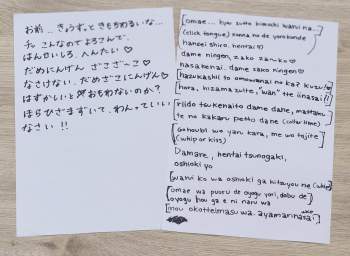 お前... きょうずっときもちわるいな...
チッ こんなのでよろこんで、
はんせいしろ、へんたい♡
だめにんげん ざこざ〜こ♡
なさけない、だめざこにんげん♡
はずかしいとおもわないのか?
ほらひざまずいて、わんっていい
なさい!!
[omae... kyou zutto kimochi warui na...
(click tongue) konna no de yorokonde
hansei shiro, hentai♡
dame ningen, zako za~ko♡
nasakenai, dame zako ningen♡
hazukashii to omowanai no ka? kuzu!♡
hora, hizamazuite, "wan" tte iinasai!!]
[riido tsukenaito dame dane, mattaku
te no kakaru petto dane (collar time)]
[Gohoubi wo yan kara, me wo tojite
(whip or kiss)]
[Damare, hentai tsunogaki,
oshioki yo]
[warui ko wa oshioki ga hitsuyou ne (whip)]
[omae wa puuru de oyogu yori, dobu de
oyogu hou ga e ni naru wa]
[mou okotteimasu wa. ayamarinasai]